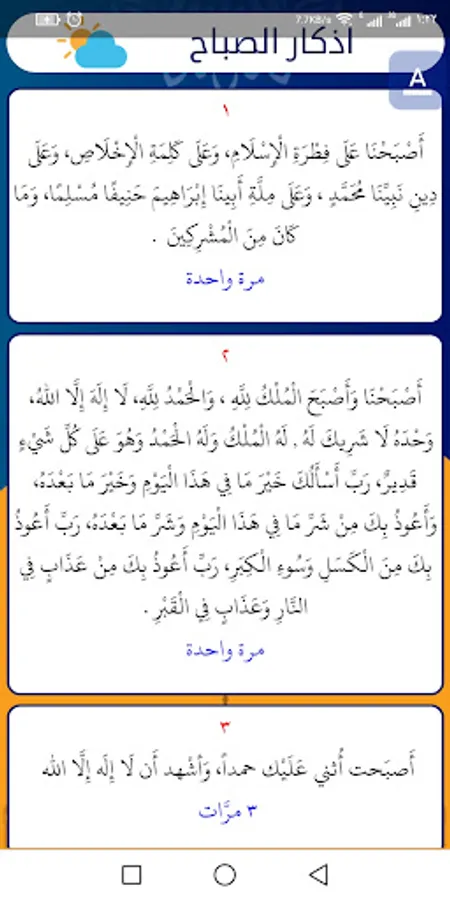 7.7KB/s ١:٢٧
اذكار الصباح
A
١
أَصْبَحْنَا عَلَى فِطْرَةِ الْإِسْلَامِ، وَعَلَى كَلِمَةِ الْإِخْلَاصِ، وَعَلَى
دِينِ نَبِيِّنَا مُحَمَّدٍ ، وَعَلَى مِلَّةِ أَبِينَا إِبْرَاهِيمَ حَنِيفًا مُسْلِمًا، وَمَا
كَانَ مِنَ الْمُشْرِكِينَ .
مرة واحدة
٢
أَصْبَحْنَا وَأَصْبَحَ الْمُلْكُ لِلَّهِ ، وَالْحَمْدُ لِلَّهِ، لَا إِلَهَ إِلَّا اللهُ،
وَحْدَهُ لَا شَرِيكَ لَهُ , لَهُ الْمُلْكُ وَلَهُ الْحَمْدُ وَهُوَ عَلَى كُلِّ شَيْءٍ
قَدِيرٌ، رَبِّ أَسْأَلُكَ خَيْرَ مَا فِي هَذَا الْيَوْمِ وَخَيْرَ مَا بَعْدَهُ،
وَأَعُوذُ بِكَ مِنْ شَرِّ مَا فِي هَذَا الْيَوْمِ وَشَرِّ مَا بَعْدَهُ، رَبِّ أَعُوذُ
بِكَ مِنَ الْكَسَلِ وَسُوءِ الْكِبَرِ، رَبِّ أَعُوذُ بِكَ مِنْ عَذَابٍ فِي
النَّارِ وَعَذَابٍ فِي الْقَبْرِ .
مرة واحدة
٣
أَصبَحت أُثني عَلَيْك حمداً، وَأشْهد أَن لَا إِلَه إِلَّا الله
٣ مرَّات